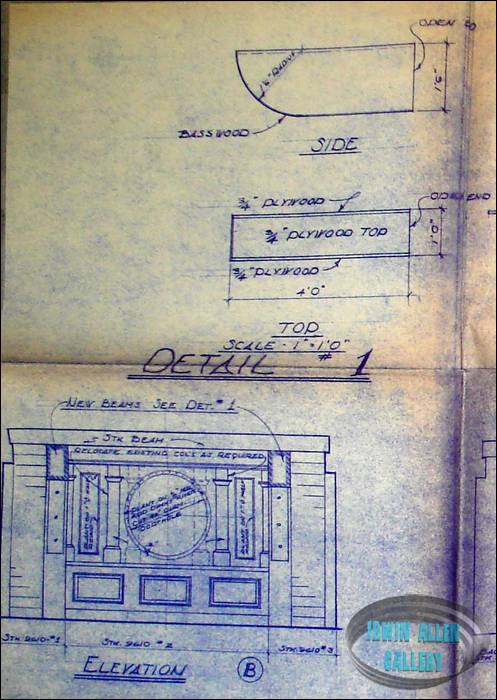 OPEN
1'6" RADIUS
1'6"
BASSWOOD
SIDE
3/4" PLYWOOD
OPEN END
3/4" PLYWOOD TOP
1'0"
3/4" PLYWOOD
4'0"
TOP
SCALE - 1" = 1'0"
DETAIL # 1
NEW BEAMS SEE DET. # 1
STK BEAM
RELOCATE EXISTING COL'S AS REQUIRED
STK. 9610 - #1
STK. 9610 #2
STK. 9610 #3
ELEVATION B
IRWIN ALLEN
GALLERY